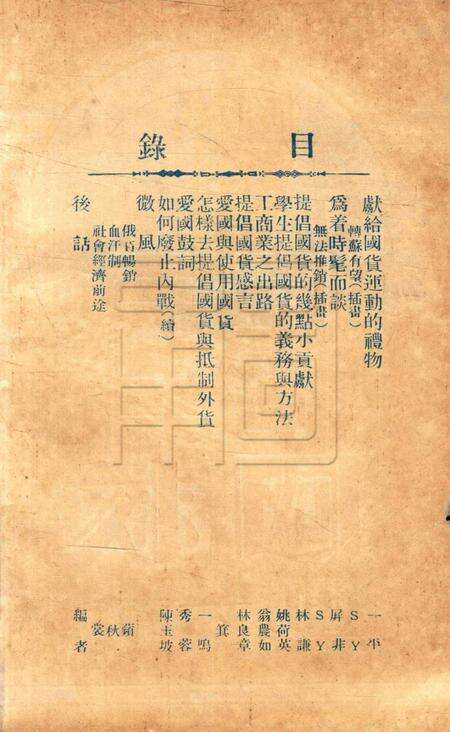 目錄
獻給國貨運動的禮物 一平
轉蘇有望(插畫) S Y
爲着時髦而談 屏非
無法推銷(插畫) S Y
提倡國貨的幾點小貢獻 林謙
學生提倡國貨的義務與方法 姚荷英
工商業之出路 翁農如
提倡國貨感言 林良章
愛國與使用國貨 箕
怎樣去提倡國貨與抵制外貨 一鳴
愛國鼓詞 秀蓉
如何廢止內戰(續) 陳玉坡
微風
俄貨暢銷 蘋
血汗制 秋
社會經濟前途 裳
後話 編者